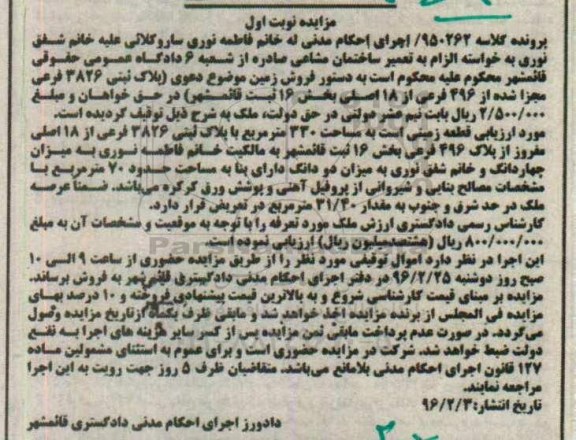 مزایده نوبت اول
پرونده کلاسه ۹۵۰۲۶۲/ اجرای احکام مدنی له خانم فاطمه نوری ساروکلائی علیه خانم شفق
نوری به خواسته الزام به تعمیر ساختمان مشاعی صادره از شعبه ۶ دادگاه عمومی حقوقی
قائمشهر محکوم علیه محکوم است به دستور فروش زمین موضوع دعوی (پلاک ثبتی ۳۸۲۶ فرعی
مجزا شده از ۴۹۶ فرعی از ۱۸ اصلی بخش ۱۶ ثبت قائمشهر) در حق خواهان و مبلغ
۲/۵۰۰/۰۰۰ ریال بابت نیم عشر دولتی در حق دولت، ملک به شرح ذیل توقیف گردیده است.
مورد ارزیابی قطعه زمینی است به مساحت ۳۳۰ مترمربع با پلاک ثبتی ۳۸۲۶ فرعی از ۱۸ اصلی
مفروز از پلاک ۴۹۶ فرعی بخش ۱۶ ثبت قائمشهر به مالکیت خانم فاطمه نوری به میزان
چهاردانگ و خانم شفق نوری به میزان دو دانگ دارای بنا به مساحت حدود ۷۰ مترمربع با
مشخصات مصالح بنایی و شیروانی از پروفیل آهنی و پوشش ورق کرکره می‌باشد. ضمنا عرصه
ملک در حد شرق و جنوب به مقدار ۳۱/۴۰ مترمربع در تعریض قرار دارد.
کارشناس رسمی دادگستری ارزش ملک مورد تعرفه را با توجه به موقعیت و مشخصات آن به مبلغ
۸۰۰/۰۰۰/۰۰۰ ریال (هشتصدمیلیون ریال) ارزیابی نموده است.
این اجرا در نظر دارد اموال توقیفی مورد نظر را از طریق مزایده حضوری از ساعت ۹ الی ۱۰
صبح روز دوشنبه ۹۶/۲/۲۵ در دفتر اجرای احکام مدنی دادگستری قائمشهر به فروش برساند.
مزایده بر مبنای قیمت کارشناسی شروع و به بالاترین قیمت پیشنهادی فروخته و ۱۰ درصد بهای
مزایده فی المجلس از برنده مزایده اخذ خواهد شد و مابقی ظرف یکماه ازتاریخ مزایده وصول
می‌گردد. در صورت عدم پرداخت مابقی ثمن مزایده پس از کسر سایر هزینه های اجرا به نفع
دولت ضبط خواهد شد. شرکت در مزایده حضوری است و برای عموم به استثنای مشمولین ماده
۱۲۷ قانون اجرای احکام مدنی بلامانع می‌باشد. متقاضیان ظرف ۵ روز جهت رویت به این اجرا
مراجعه نمایند.
تاریخ انتشار: ۹۶/۲/۳
دادورز اجرای احکام مدنی دادگستری قائمشهر